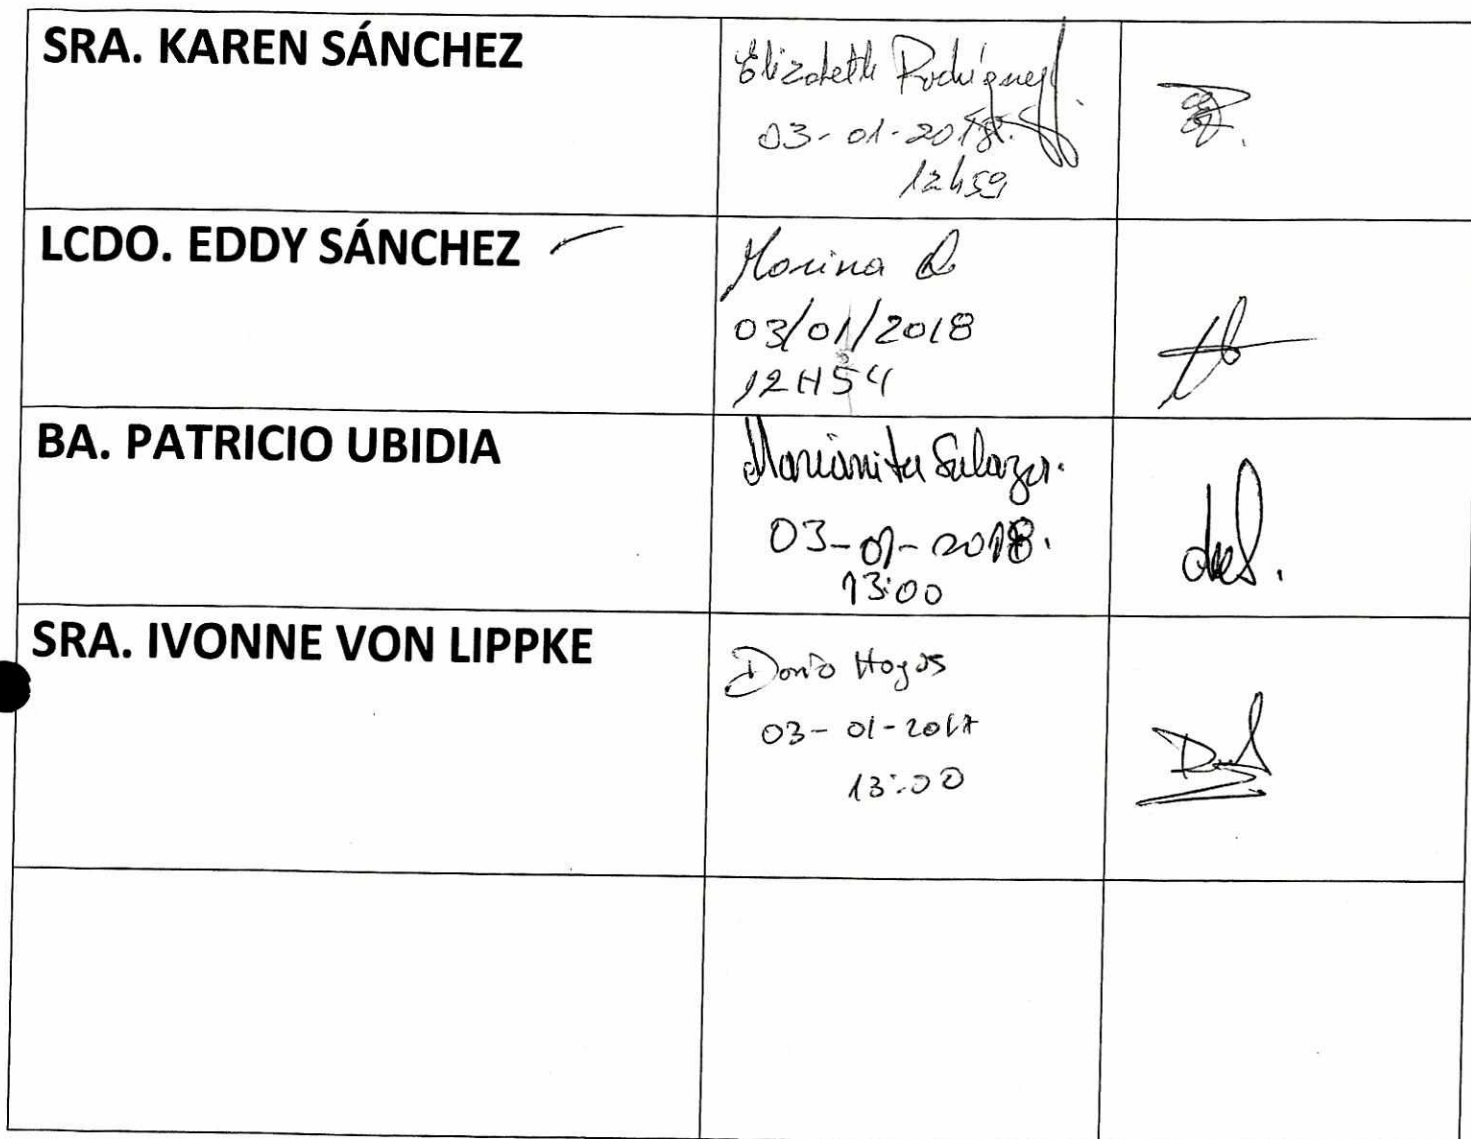 SRA. KAREN SÁNCHEZ
Elizabeth Rodríguez
03-01-2018.
12h59
LCDO. EDDY SÁNCHEZ
03/01/2018
12H54
BA. PATRICIO UBIDIA
Marianita Salazar.
03-01-2018.
13:00
SRA. IVONNE VON LIPPKE
03-01-2017
13:00